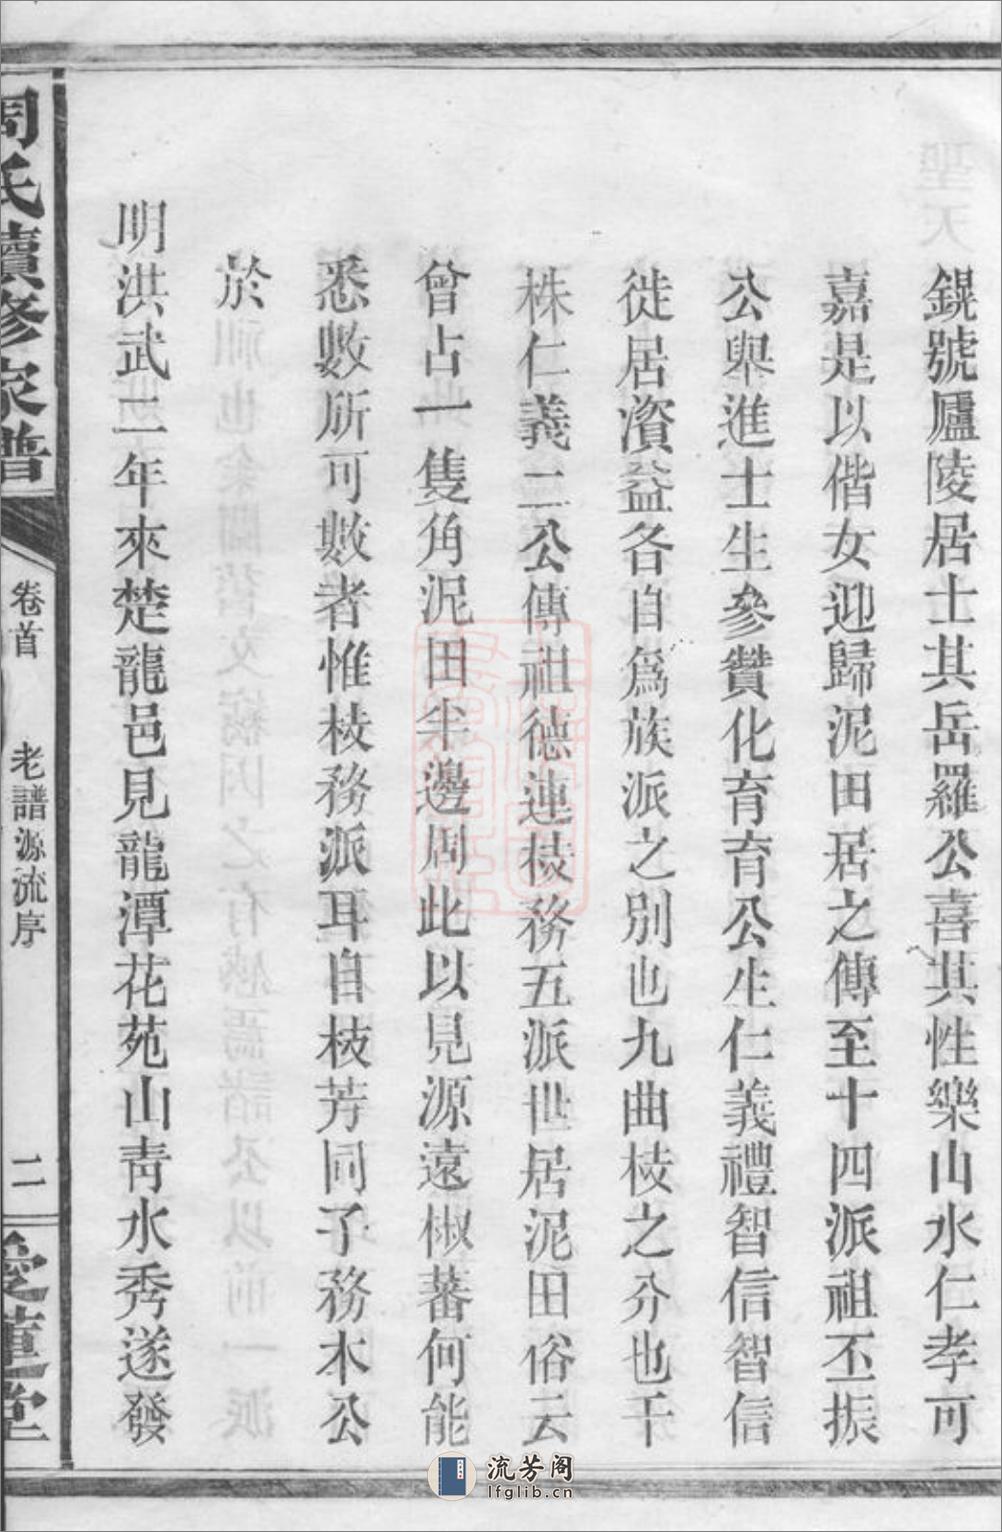 錕號廬陵居士其岳羅公喜其性樂山水仁孝可
嘉是以偕女迎歸泥田居之傳至十四派祖丕振
公舉進士生參贊化育育公生仁義禮智信智信
徙居濱益各自爲族派之別也九曲枝之分也千
株仁義二公傳祖德連枝務五派世居泥田俗云
曾占一隻角泥田半邊周此以見源遠椒蕃何能
悉數所可數者惟枝務派耳自枝芳同子務本公
於
明洪武二年來楚龍邑見龍潭花苑山青水秀遂發
周氏續修家譜
卷首
老譜源流序
二
愛蓮堂
流芳阁
lfglib.cn